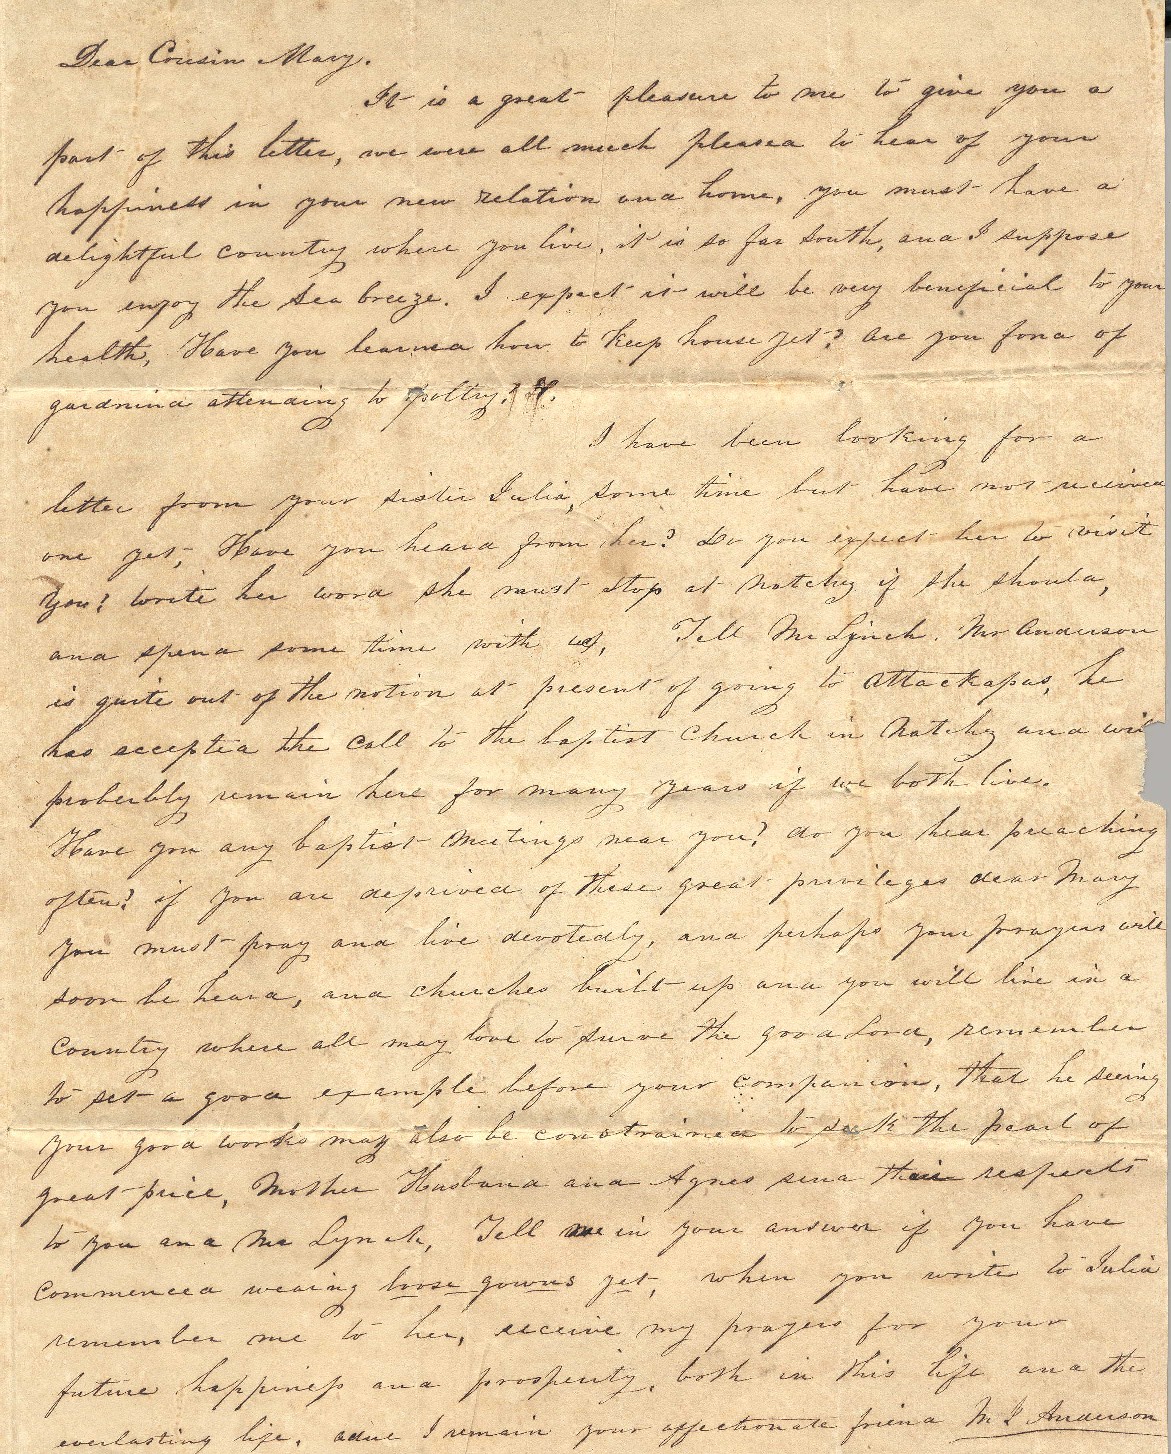 Dear Cousin Mary.
It is a great pleasure to me to give you a
part of this letter, we were all much pleased to hear of your
happiness in your new relation and home, you must have a
delightful country where you live, it is so far south, and I suppose
you enjoy the sea breeze. I expect it will be very beneficial to your
health, Have you learned how to keep house yet? are you fond of
gardning attending to poltry?
I have been looking for a
letter from your sister Julia, some time but have not received
one yet, Have you heard from her? Do you expect her to visit
you? Write her word she must stop at Natchez if she should,
and spend some time with us, Tell Mr Lynch. Mr Anderson
is quite out of the notion at present of going to Attackapas, he
has accepted the call to the baptist Church in Natchez and will
proberbly remain here for many years if we both live.
Have you any baptist meetings near you? do you hear preaching
often? if you are deprived of these great privileges dear Mary
you must pray and live devotedly, and perhaps your prayers will
soon be heard, and churches built up and you will live in a
Country where all may love to serve the good Lord, remember
to set a good example before your companion, that he seeing
your good works may also be constrained to seek the pearl of
great price, Mother Husband and Agnes send their respects
to you and Mr Lynch, Tell me in your answer if you have
commenced wearing loose gowns yet, when you write to Julia
remember me to her, receive my prayers for your
future happiness and prosperity, both in this life and the
everlasting life, adue I remain your affectionate friend M I Anderson